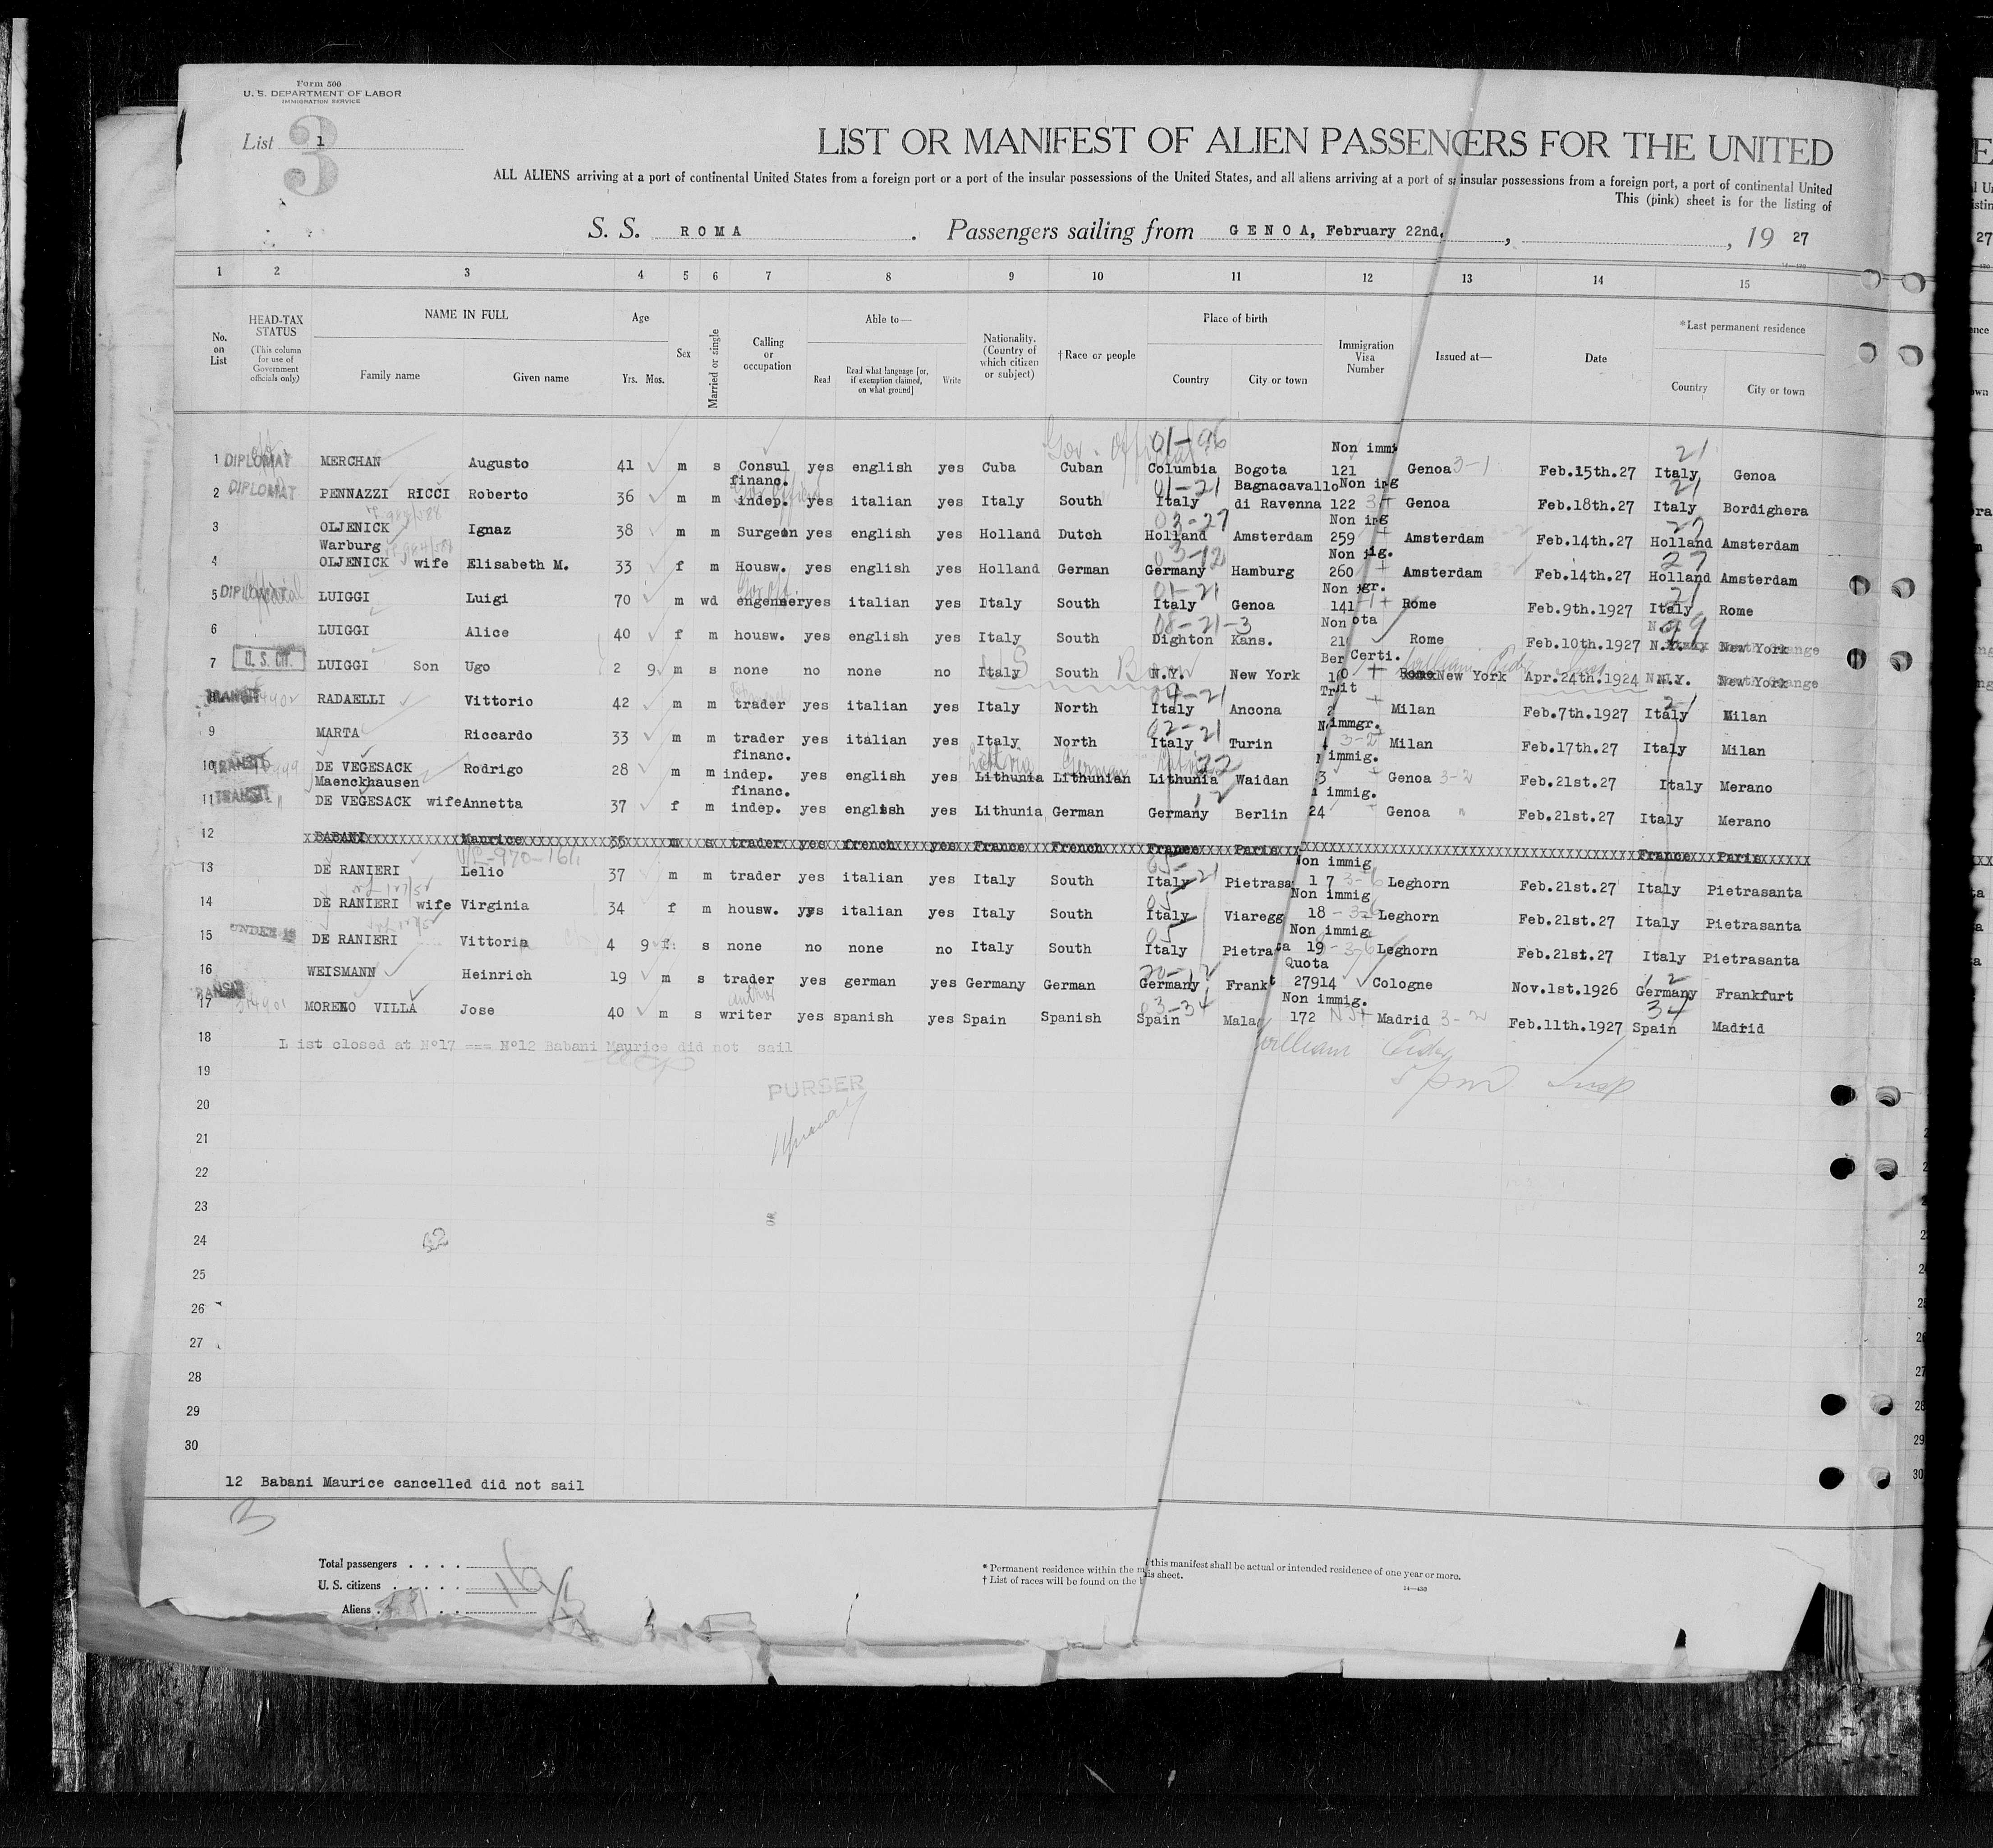 Form 500
U. S. DEPARTMENT OF LABOR
IMMIGRATION SERVICE
List 1
3
LIST OR MANIFEST OF ALIEN PASSENGERS FOR THE UNITED
ALL ALIENS arriving at a port of continental United States from a foreign port or a port of the insular possessions of the United States, and all aliens arriving at a port of insular possessions from a foreign port, a port of continental United
This (pink) sheet is for the listing of
S. S. ROMA. Passengers sailing from GENOA, February 22nd, , 19 27
1 2 3 4 5 6 7 8 9 10 11 12 13 14 15
No. on List
HEAD-TAX STATUS
(This column for use of Government officials only)
NAME IN FULL
Family name Given name
Age
Yrs. Mos.
Sex
Married or single
Calling or occupation
Able to—
Read
Read what language [or, if exemption claimed, on what ground]
Write
Nationality. (Country of which citizen or subject)
†Race or people
Place of birth
Country City or town
Immigration Visa Number
Issued at—
Date
*Last permanent residence
Country City or town
Gov. Official 01-96 Non immi 21
1 DIPLOMAT MERCHAN Augusto 41 m s Consul yes english yes Cuba Cuban Columbia Bogota 121 Genoa 3-1 Feb.15th.27 Italy Genoa
financ. 01-21 Bagnacavallo Non 21
2 DIPLOMAT PENNAZZI RICCI Roberto 36 m m indep. yes italian yes Italy South Italy di Ravenna 122 Genoa Feb.18th.27 Italy Bordighera
03-27 Non 27
3 OLJENICK Ignaz 38 m m Surgeon yes english yes Holland Dutch Holland Amsterdam 259 Amsterdam Feb.14th.27 Holland Amsterdam
Warburg 03-12 Non 27
4 OLJENICK wife Elisabeth M. 33 f m Housw. yes english yes Holland German Germany Hamburg 260 Amsterdam Feb.14th.27 Holland Amsterdam
01-21 Non 21
5 DIPLOMAT LUIGGI Luigi 70 m wd engenner yes italian yes Italy South Italy Genoa 141 Rome Feb.9th.1927 Italy Rome
08-21-3 Non 99
6 LUIGGI Alice 40 f m housw. yes english yes Italy South Dighton Kans. 21 Rome Feb.10th.1927 N.Y. New York
Certi.
7 U. S. CIT. LUIGGI Son Ugo 2 9 m s none no none no Italy South N.Y. New York New York Apr.24th.1924 N.Y. New York
04-21 21
8 TRANSIT RADAELLI Vittorio 42 m m trader yes italian yes Italy North Italy Ancona Milan Feb.7th.1927 Italy Milan
02-21 immgr.
9 MARTA Riccardo 33 m m trader yes italian yes Italy North Italy Turin 3-2 Milan Feb.17th.27 Italy Milan
financ. Latvia German immig.
10 TRANSIT DE VEGESACK Rodrigo 28 m m indep. yes english yes Lithunia Lithunian Lithunia Waidan 3 Genoa 3-2 Feb.21st.27 Italy Merano
Maenckhausen financ. immig.
11 TRANSIT DE VEGESACK wife Annetta 37 f m indep. yes english yes Lithunia German Germany Berlin 24 Genoa " Feb.21st.27 Italy Merano
12 BABANI Maurice 35 m s trader yes french yes France French France Paris France Paris
05-21 Non immig
13 DE RANIERI Lelio 37 m m trader yes italian yes Italy South Italy Pietrasa 17 3-6 Leghorn Feb.21st.27 Italy Pietrasanta
05 Non immig
14 DE RANIERI wife Virginia 34 f m housw. yes italian yes Italy South Italy Viaregg 18 -3 Leghorn Feb.21st.27 Italy Pietrasanta
05 Non immig.
15 UNDER 16 DE RANIERI Vittoria 4 9 f. s none no none no Italy South Italy Pietra 19 -3-6 Leghorn Feb.21st.27 Italy Pietrasanta
20-12 Quota 12
16 WEISMANN Heinrich 19 m s trader yes german yes Germany German Germany Frank 27914 Cologne Nov.1st.1926 Germany Frankfurt
author 03-34 Non immig. 34
17 MORENO VILLA Jose 40 m s writer yes spanish yes Spain Spanish Spain Mala 172 Madrid 3-2 Feb.11th.1927 Spain Madrid
18 List closed at Nº17 === Nº12 Babani Maurice did not sail William
19
PURSER
20
21
22
23
24
25
26
27
28
29
30
12 Babani Maurice cancelled did not sail
Total passengers . . . .
U. S. citizens . . . . .
Aliens
* Permanent residence within the this manifest shall be actual or intended residence of one year or more.
† List of races will be found on the sheet.
14—430